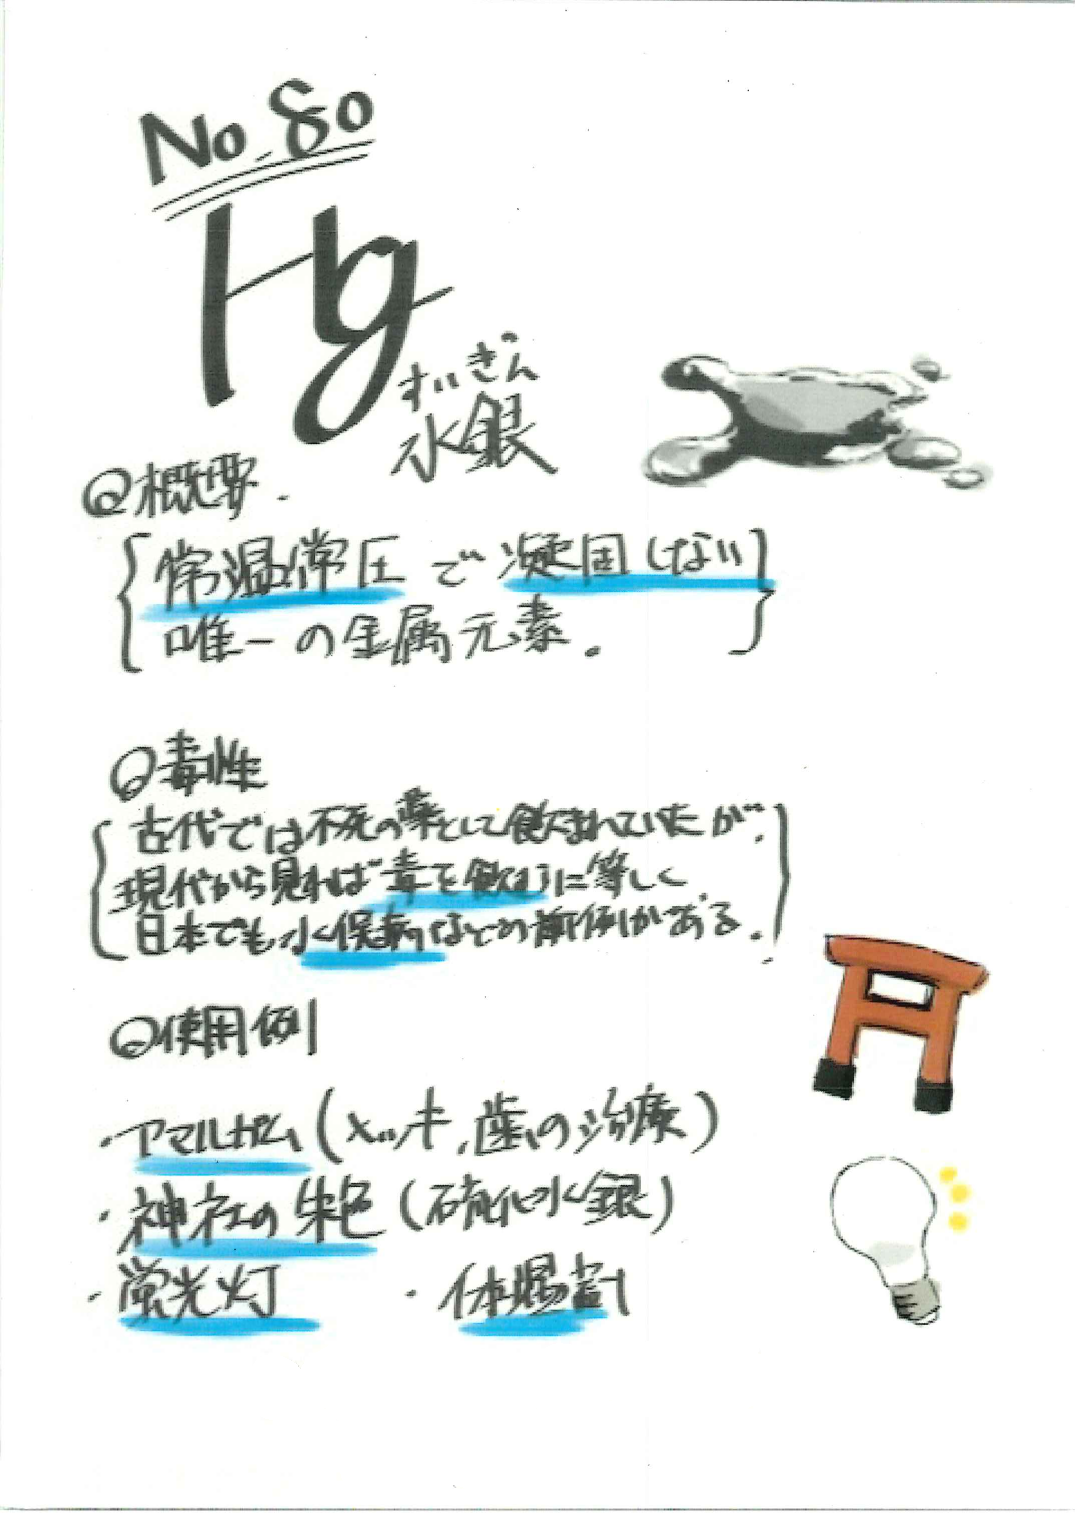 No.80
Hg
すいぎん
水銀
概要.
常温常圧で凝固しない
唯一の金属元素.
毒性
古代では不死の薬として飲まれていたが、
現代から見れば毒を飲むに等しく
日本でも水俣病などの前例がある.
使用例
・アマルガム(メッキ,歯の治療)
・神社の朱色(硫化水銀)
・蛍光灯 ・体温計